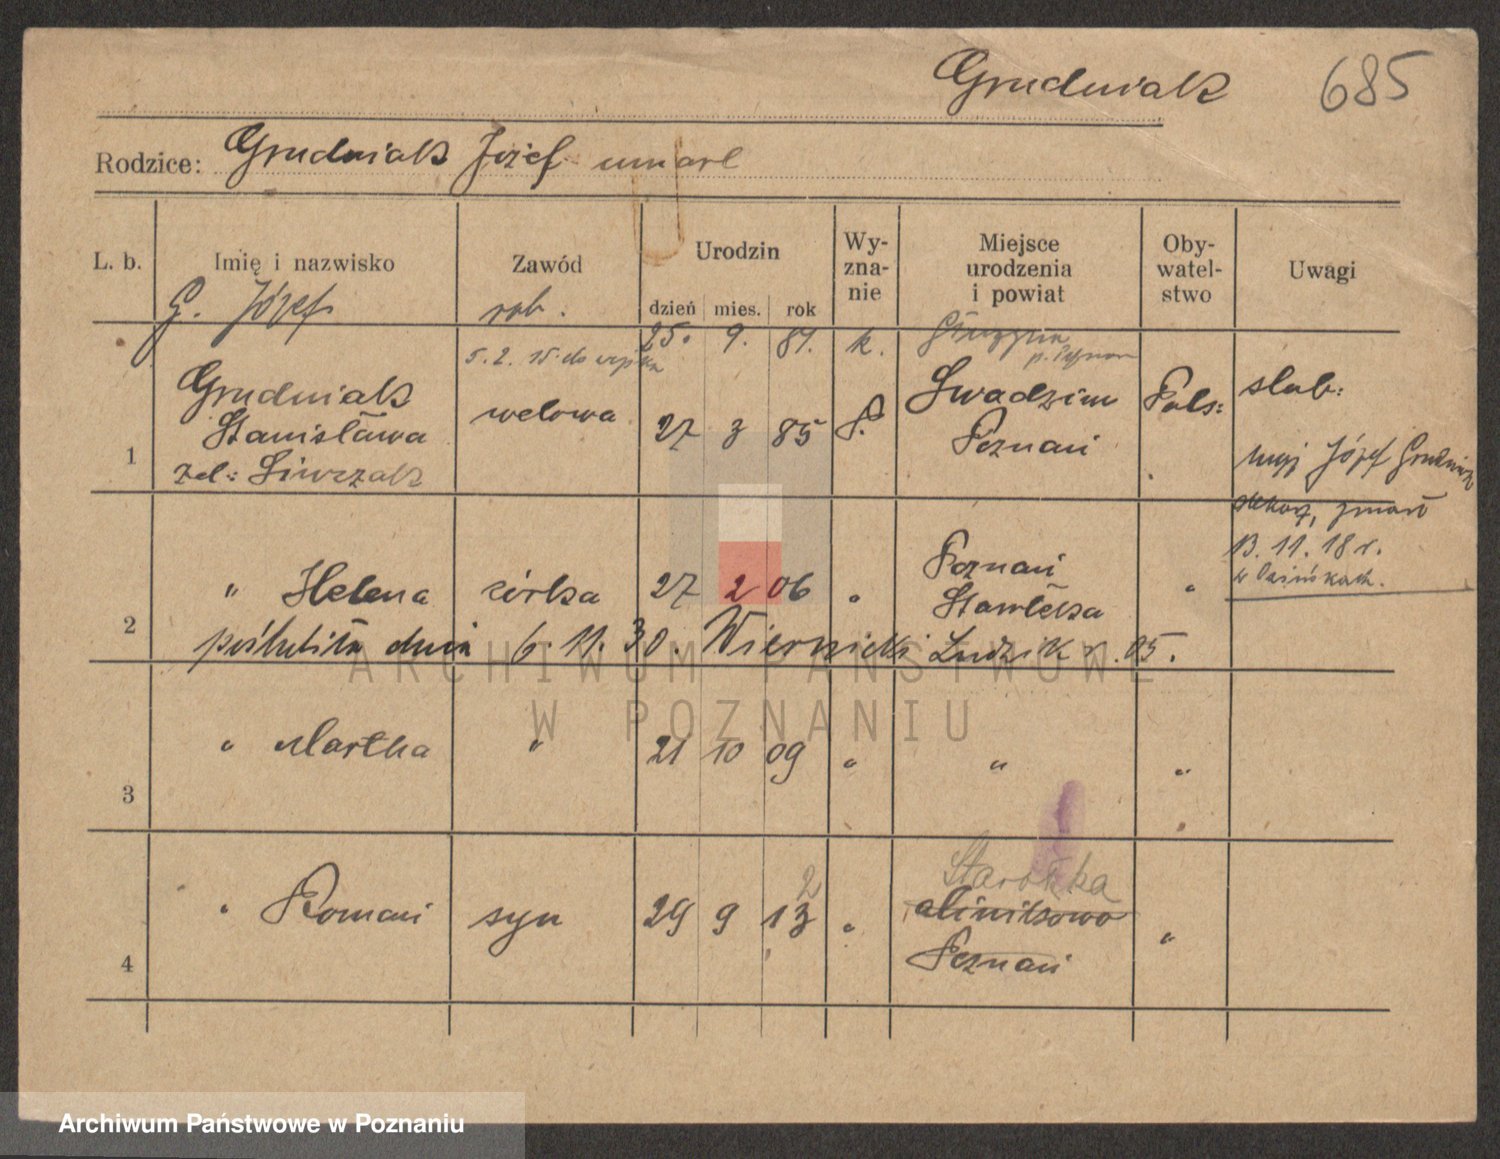 Grudniak 685
Rodzice: Grudniak Józef umarł
L. b. Imię i nazwisko Zawód Urodzin Wy- zna- nie Miejsce urodzenia i powiat Oby- watel- stwo Uwagi
dzień mies. rok
G. Józef rob. 25. 9. 81. k.
5. 2. 15. do
1 Grudniak Stanisława welowa 27 3 85 Swadzim Poznań Pols: slub:
Józef Grudniak
zmarł
13. 11. 18 r.
2 " Helena córka 27 2 06 " Poznań "
poślubiła dnia 6. 11. 30. Wiernicki Ludzik r. 05.
3 " Martha " 21 10 09 " " "
4 " Roman syn 29 9 13 2 " Starołęka Poznań "
ARCHIWUM PAŃSTWOWE
W POZNANIU
Archiwum Państwowe w Poznaniu